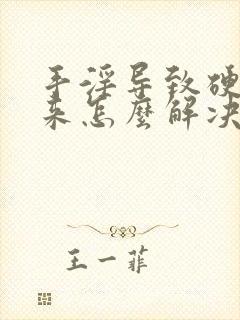 手淫导致硬
来怎麼解决
王一菲